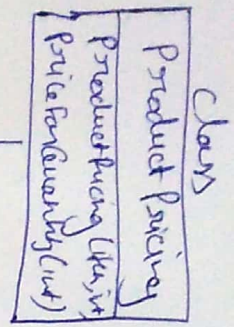 Class
Product Pricing
Product Pricing (
Price for Quantity (int)